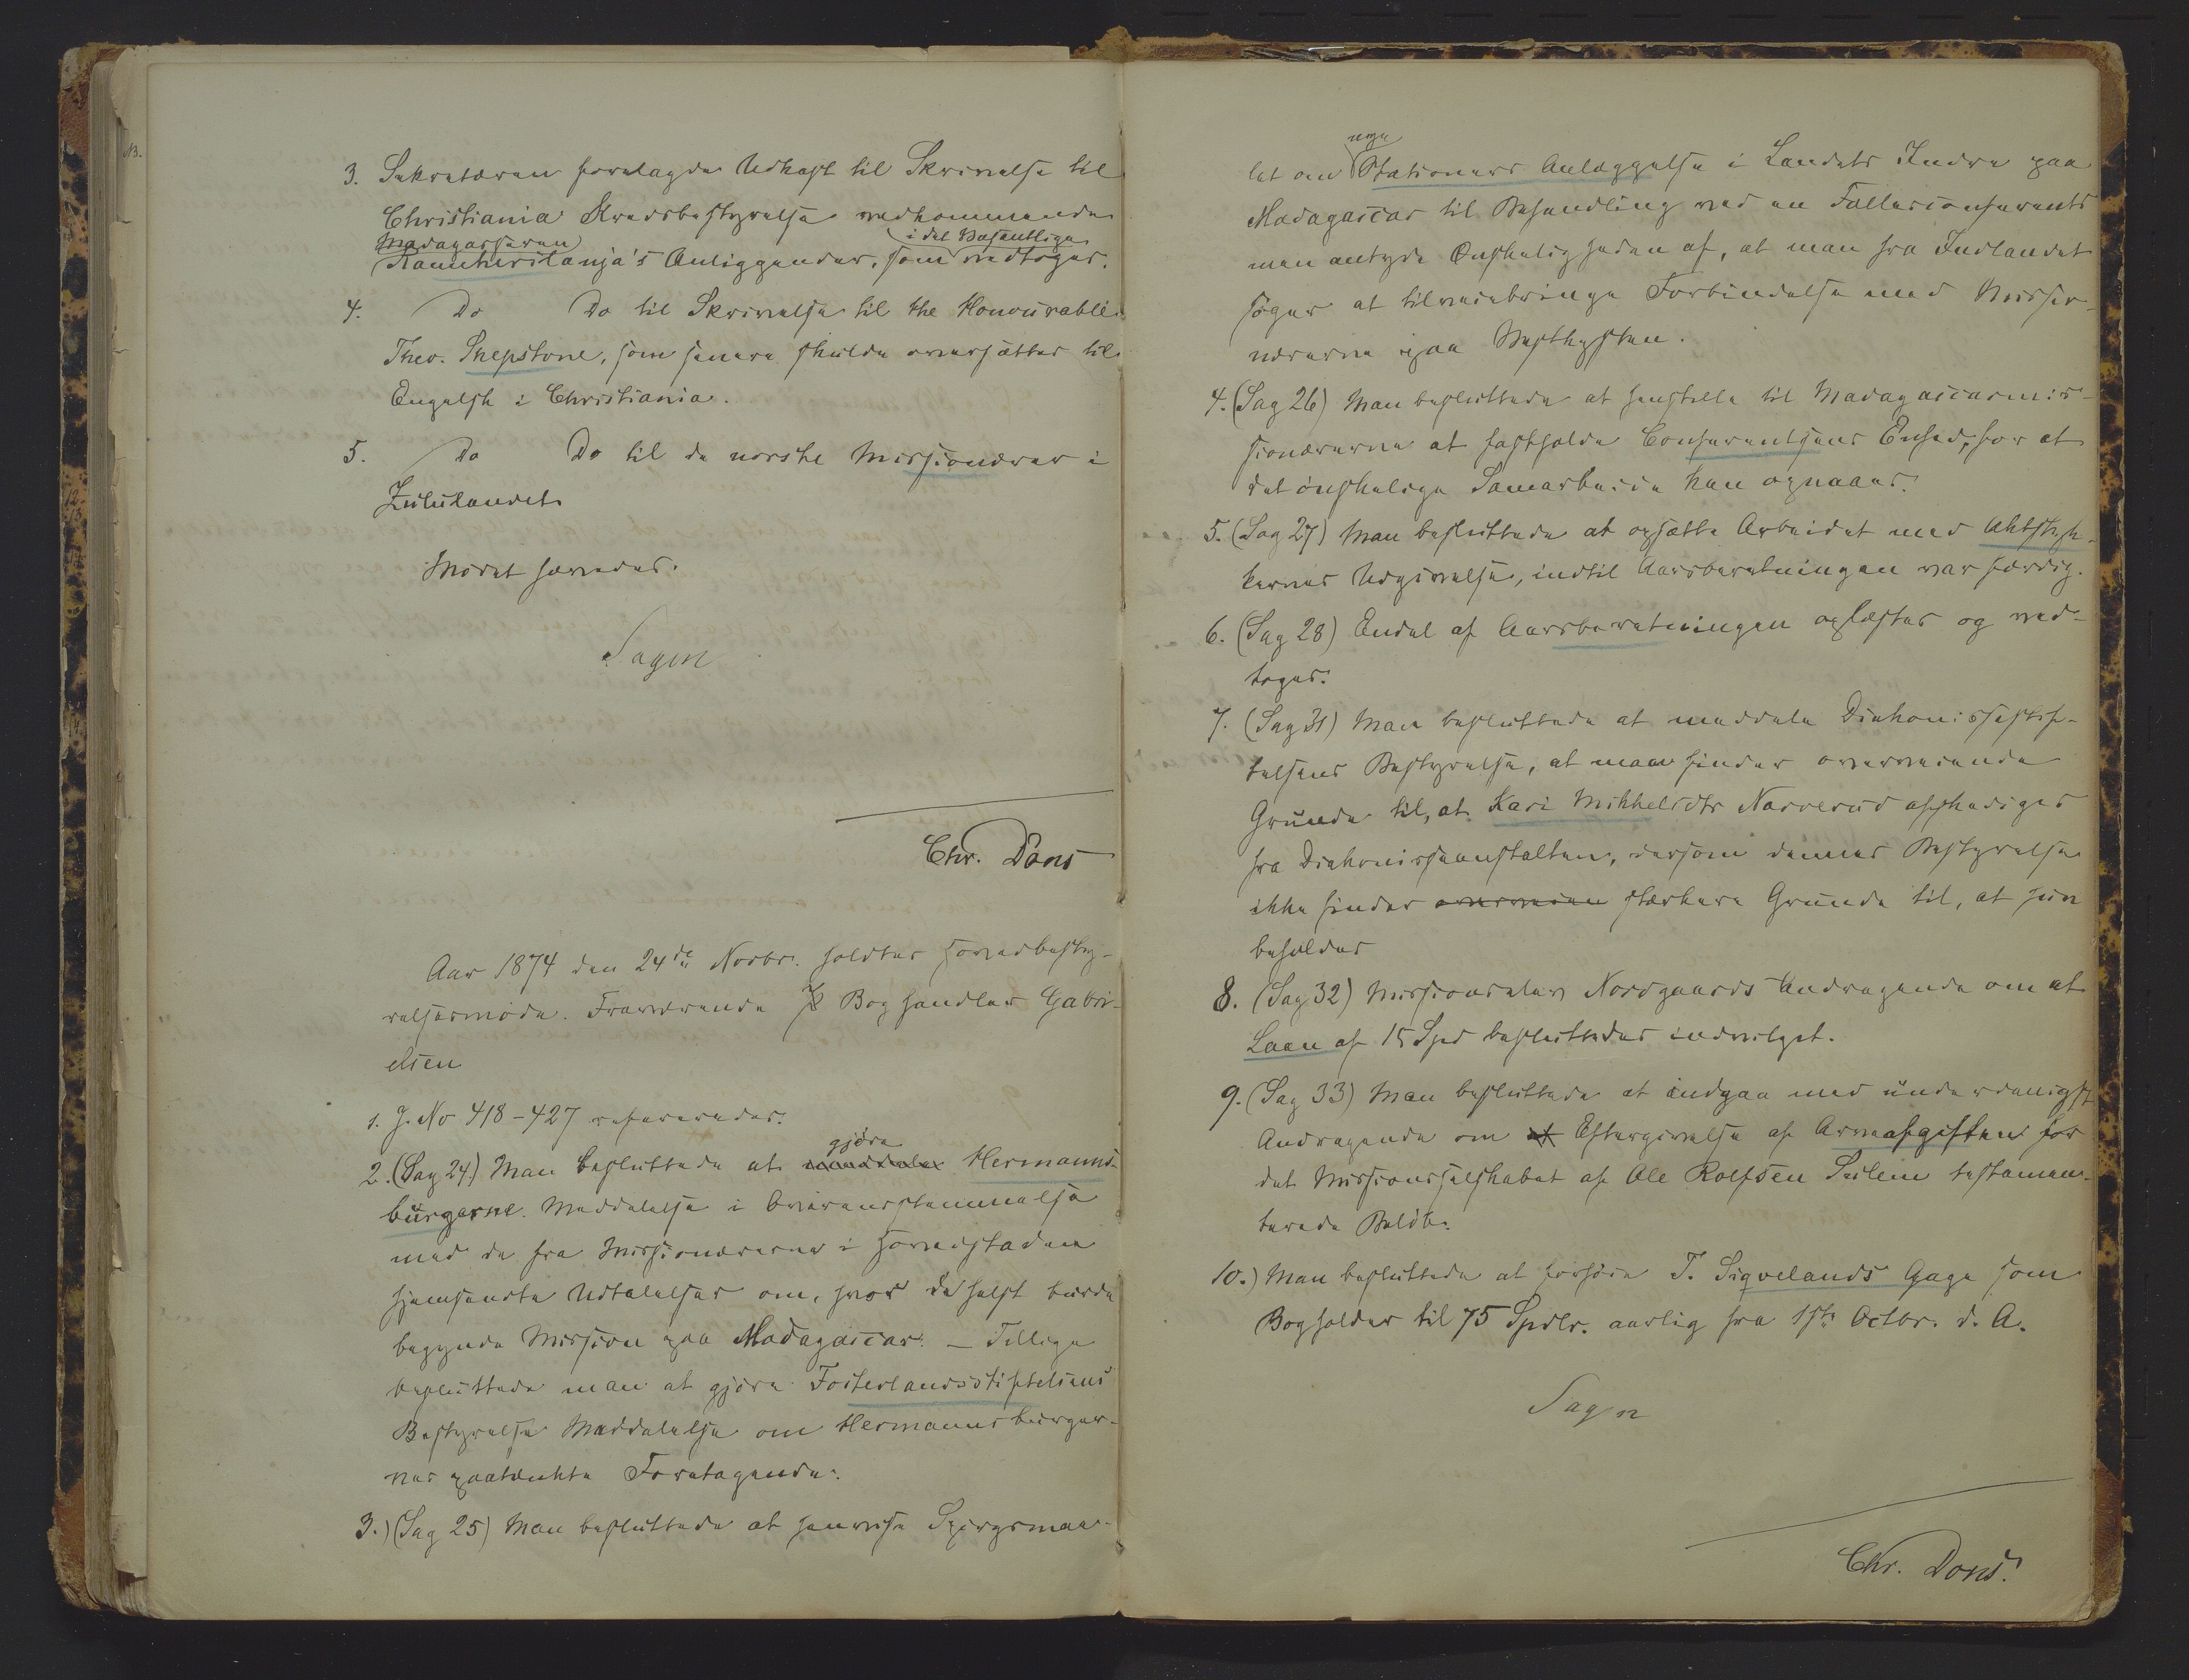 3. Sekretæren forelagde Udkast til Skrivelse til
Christiania Kredsbestyrelse vedkommende
Madagasseren i det Væsentlige
Anliggender, som vedtoges.
4. Do Do til Skrivelse til the Honourable
Theo. Shepstone, som senere skulde oversættes til
Engelsk i Christiania.
5. Do Do til de norske Missionærer i
Zululandet
Mødet hævedes.
Chr. Dons
Aar 1874 den 24de Novbr. holdtes Hovedbesty-
relsesmøde. Fraværende Boghandler Gabri-
elsen
1. J. No 418-427 refereredes.
gjøre
2. (Sag 24.) Man besluttede at meddele Hermanns-
burgerne Meddelelse i Overensstemmelse
med de fra Missionærerne i Hovedstaden
hjemsendte Udtalelser om, hvor de helst burde
begynde Mission paa Madagascar. – Tillige
besluttede man at gjøre Fosterlandsstiftelsens
Bestyrelse Meddelelse om Hermannsburger-
nes paatænkte Foretagende.
3.) (Sag 25) Man besluttede at henvise Spørgsmaa-
nye
let om Stationers Anlæggelse i Landets Indre paa
Madagascar til Behandling ved en Fællesconferents
men antyde Ønskeligheden af, at man fra Indlandet
søger at tilveiebringe Forbindelse med Missio-
nærerne paa Vestkysten.
4. (Sag 26) Man besluttede at henstille til Madagascarmis-
sionærerne at fastholde Conferentsens Enhed, for at
det ønskelige Samarbeide kan opnaaes.
5. (Sag 27) Man besluttede at opsætte Arbeidet med Aktstyk-
kernes Udgivelse, indtil Aarsberetningen var færdig.
6. (Sag 28) Endel af Aarsberetningen oplæstes og ved-
toges.
7. (Sag 31) Man besluttede at meddele Diakonissestif-
telsens Bestyrelse, at man finder overveiende
Grunde til, at Kari Mikkelsdtr Narverud afskediges
fra Diakonisseanstalten, dersom dennes Bestyrelse
ikke finder overveien stærkere Grunde til, at hun
beholdes
8. (Sag 32) Missionselev Nordgaards Andragende om et
Laan af 15 Spd besluttedes indvilget.
9. (Sag 33) Man besluttede at indgaa med underdanigst
Andragende om at Eftergivelse af Arveafgiften for
det Missionsselskabet af Ole Rolfsen Seilem testamen-
terede Beløb.
10.) Man besluttede at forhøie T. Sigvelands Gage som
Bogholder til 75 Spdlr. aarlig fra 1ste Octbr. d. A.
Chr. Dons.